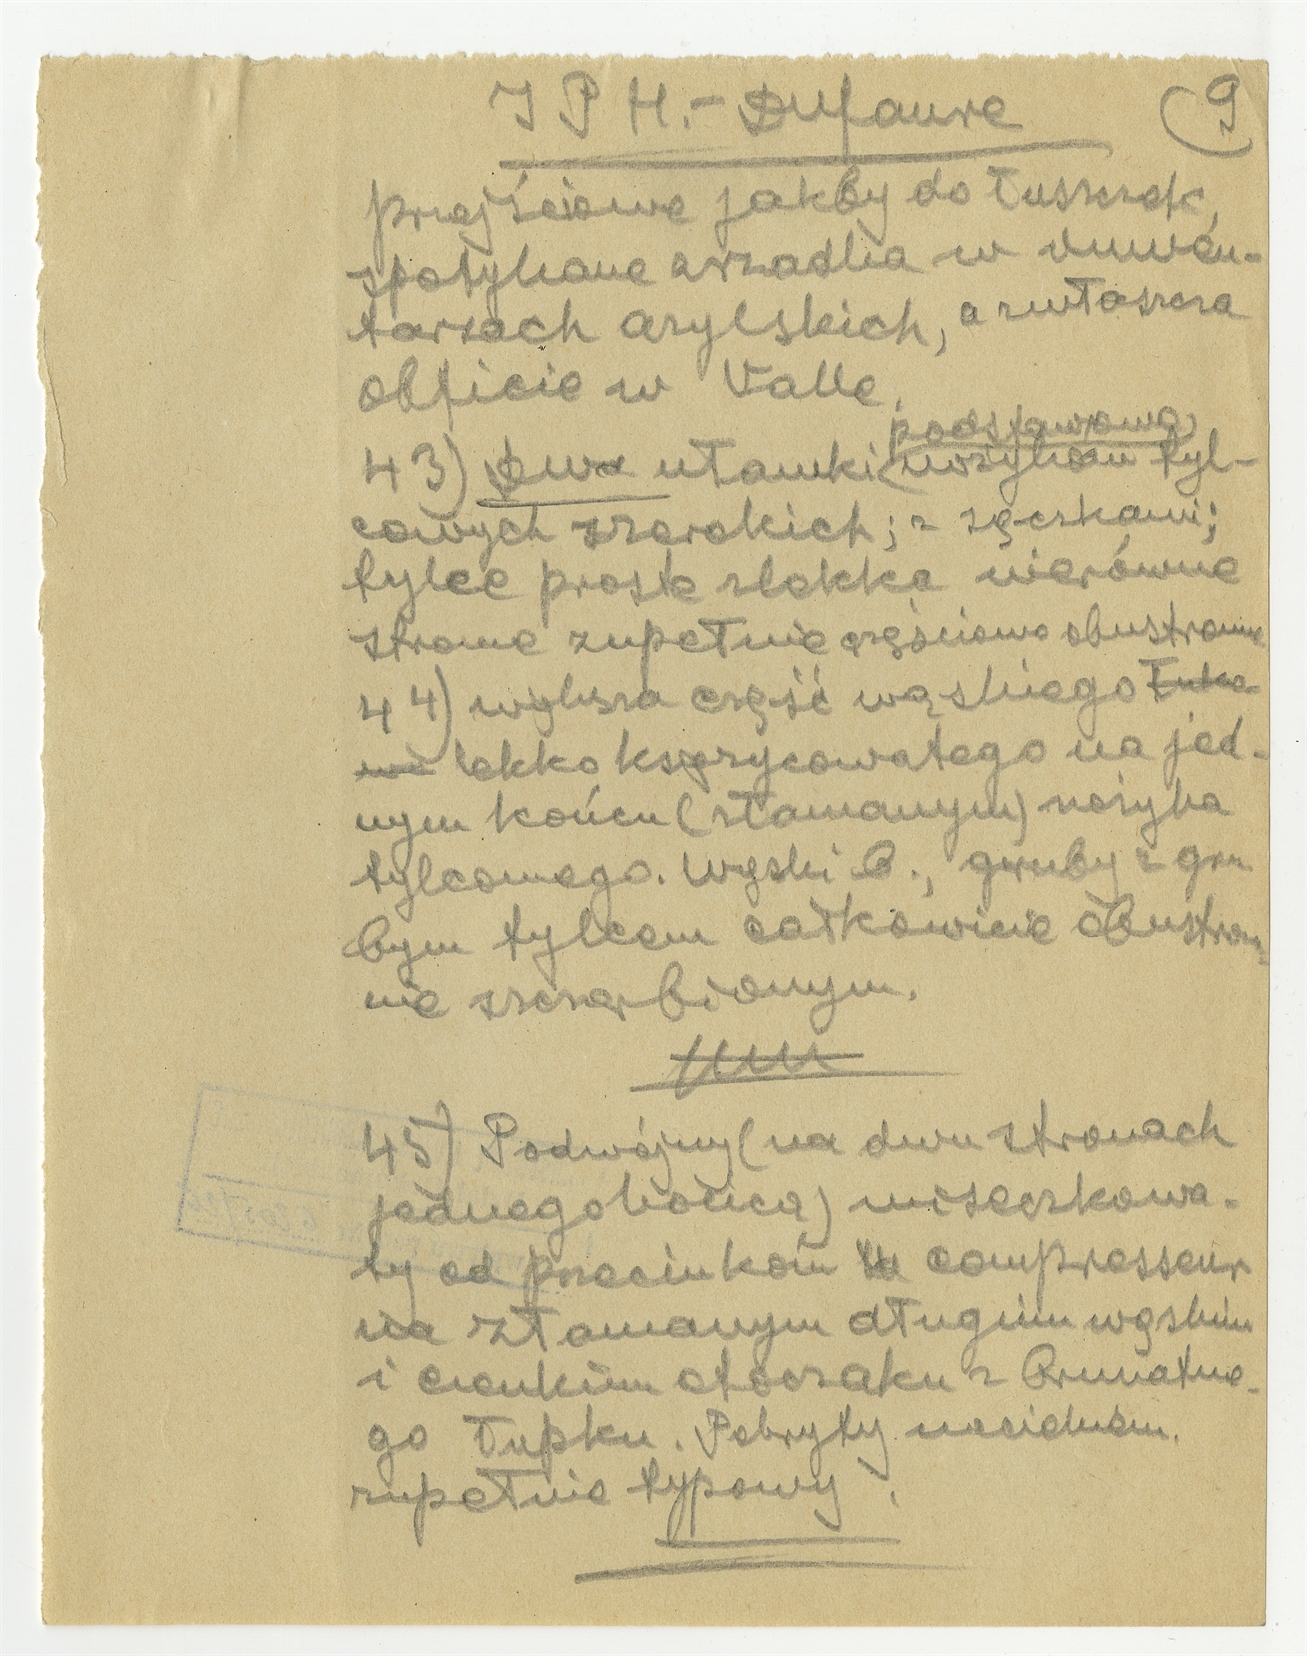 I P H. - Dufaure 9
przejściowe jakby do łuszczek,
spotykane zrzadka w inwen-
tarzach azylskich, a zwłaszcza
obficie w Valle.
podstawowa
43) Dwa ułamki nożyków tyl-
cowych szerokich; z sęczkami;
tylce proste zlekka nierówne
strome zupełnie częściowo obustronne
44) większa część wąskiego łuko-
wo lekko ksprzycowatego na jed-
nym końcu (złamanym) nożyka
tylcowego. Wąski b., gruby z gru
bym tylcem całkowicie obustron-
nie szczerbionym.
45) Podwójny (na dwu stronach
jednego końca) miseczkowa-
ty od przecinków compresseur
na złamanym długim wąskim
i cienkim otoczaku z brunatne-
go łupku. Pokryty nacinkam.
zupełnie typowy.